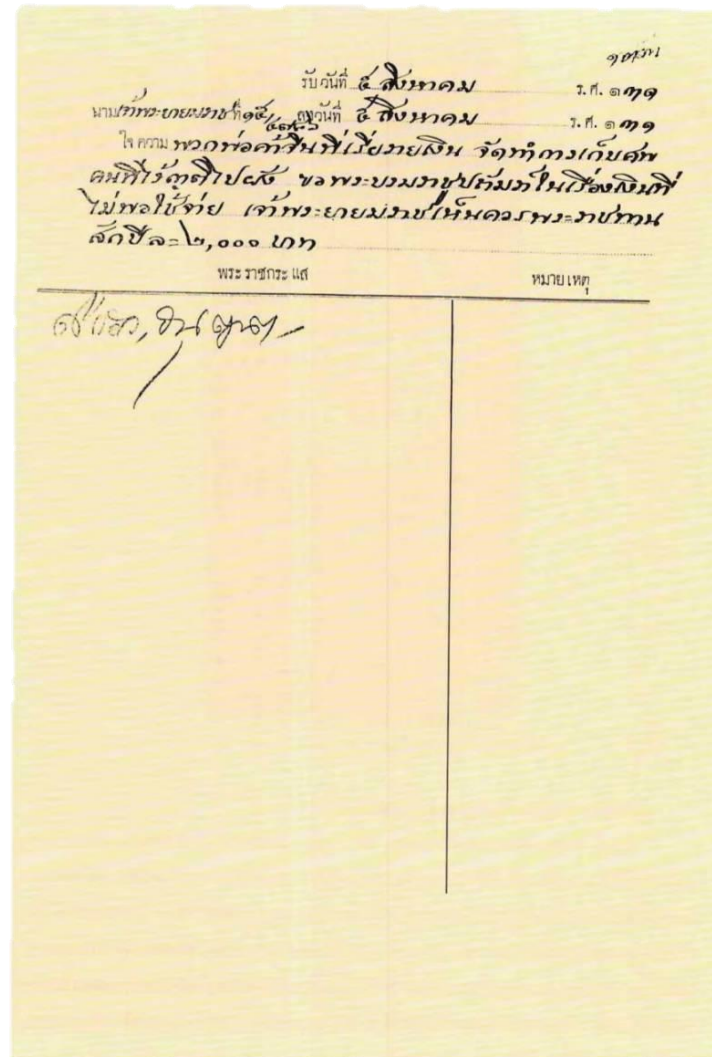 รับวันที่ ๕ สิงหาคม ร.ศ. ๑๓๑
นามเจ้าพระยายมราชที่๑๕/ ลงวันที่ ๕ สิงหาคม ร.ศ. ๑๓๑
ใจความ พวกพ่อค้าจีนที่เรี่ยรายเงิน จัดทำการเก็บศพ
คนที่ไร้ญาติไปฝัง ขอพระบรมราชูปถัมภ์ในเรื่องเงินที่
ไม่พอใช้จ่าย เจ้าพระยายมราชเห็นควรพระราชทาน
สักปีละ ๒,๐๐๐ บาท
พระราชกระแส หมายเหตุ